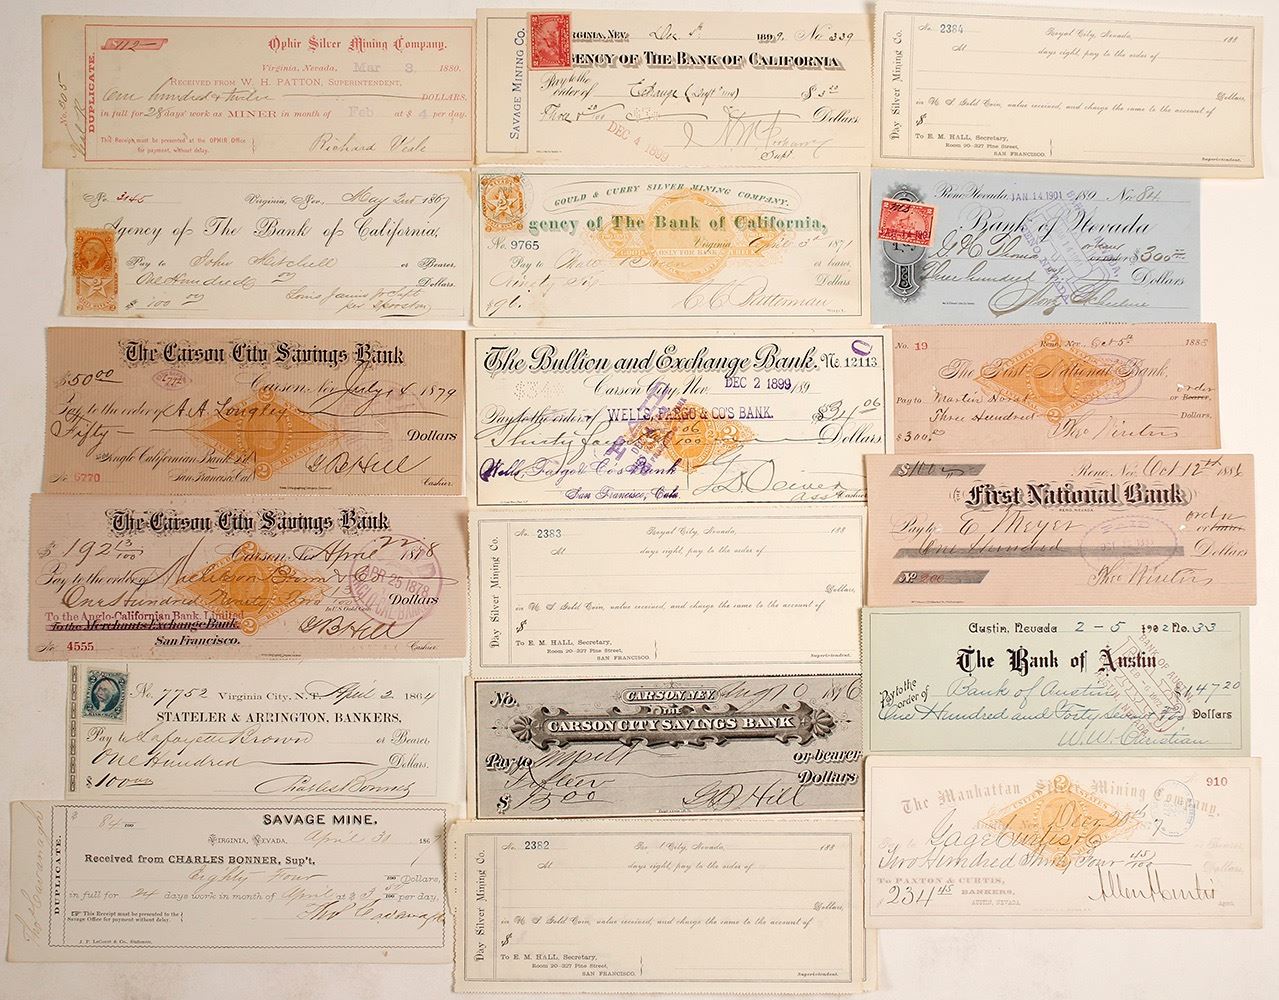 112—
Ophir Silver Mining Company.
Virginia, Nevada, Mar 3 1880.
No. 205
DUPLICATE.
RECEIVED FROM W. H. PATTON, SUPERINTENDENT,
One hundred & twelve DOLLARS,
in full for 28 days' work as MINER in month of Feb at $ 4 per day.
This Receipt must be presented at the OPHIR Office
for payment, without delay.
Richard Veale
SAVAGE MINING CO.
VIRGINIA, NEV. Dec 1899. No 339
AGENCY OF THE BANK OF CALIFORNIA
Pay to the
order of Exchange
Dollars
DEC 4 1899
Supt
Day Silver Mining Co.
No. 2384 Royal City, Nevada, 188
At days sight, pay to the order of
Dollars,
in U. S. Gold Coin, value received, and charge the same to the account of
$
To E. M. HALL, Secretary,
Room 20–327 Pine Street,
SAN FRANCISCO.
Superintendent.
No. 3145 Virginia, Nev. May 2nd 1867
Agency of The Bank of California,
Pay to John Mitchell or Bearer,
One Hundred Dollars.
$ 100
GOULD & CURRY SILVER MINING COMPANY.
Agency of The Bank of California,
No. 9765 Virginia, 3d 1871
Pay to or bearer,
Ninety Six Dollars
$96.
Reno Nevada JAN 14 1901 189 No. 84
Bank of Nevada
or bearer $300
Three hundred Dollars
The Carson City Savings Bank
$50 00 Carson, Nev July 14 1879
Pay to the order of A. A. Longley
Fifty Dollars
To the Anglo Californian Bank Ld
San Francisco, Cal
No. 5770 G B Hill Cashier.
The Bullion and Exchange Bank. No. 12113
Carson City, Nev. DEC 2 1899 189
Pay to the order of WELLS, FARGO & CO'S BANK. $34 06
Thirty four 06/100 Dollars
Wells Fargo & Co's Bank
San Francisco, Cala.
Asst Cashier
No. 19 Reno, Nev. Oct 5th 188
The First National Bank,
Pay to Martin or order or Bearer,
Three Hundred Dollars.
$300.00 Theo Winters
The Carson City Savings Bank
$ 192 13/100 Carson, April 22 1878
Pay to the order of
One Hundred Ninety Two Dollars
In U.S. Gold Coin.
To the Anglo-Californian Bank. Limited
To the Merchants Exchange Bank.
San Francisco.
No. 4555 G B Hill Cashier.
APR 25 1878
Day Silver Mining Co.
No. 2383 Royal City, Nevada, 188
At days sight, pay to the order of
Dollars,
in U. S. Gold Coin, value received, and charge the same to the account of
$
To E. M. HALL, Secretary,
Room 20–327 Pine Street,
SAN FRANCISCO.
Superintendent.
Reno, Nev. Oct 12th 188
First National Bank
RENO, NEVADA.
Pay to E Meyer or order or bearer
One Hundred Dollars
No 200 Theo Winters
No. 7752 Virginia City, N.T. April 2 1864
STATELER & ARRINGTON, BANKERS,
Pay to Lafayette Brown or Bearer,
One Hundred Dollars.
$ 100 00 Charles Bonner
No. CARSON, NEV. 1876
THE
CARSON CITY SAVINGS BANK
Pay to or bearer
Fifteen Dollars
$ 15 00 G B Hill
Austin, Nevada 2-5 1902 No. 33
The Bank of Austin
Pay to the
order of Bank of Austin $147 20
One Hundred and Forty Seven Dollars
W. W. Christian
84 SAVAGE MINE,
DUPLICATE.
VIRGINIA, NEVADA, April 30 186
Received from CHARLES BONNER, Sup't,
Eighty four Dollars,
in full for 24 days work in month of April at $ 3 per day,
This Receipt must be presented to the
Savage Office for payment without delay.
J. F. LeCount & Co., Stationers.
Day Silver Mining Co.
No. 2382 Royal City, Nevada, 188
At days sight, pay to the order of
Dollars,
in U. S. Gold Coin, value received, and charge the same to the account of
$
To E. M. HALL, Secretary,
Room 20–327 Pine Street,
SAN FRANCISCO.
Superintendent.
910
The Manhattan Silver Mining Company,
Dec 20th 187
Pay to Gage Curtis & Co
Two Hundred Thirty Four 45/100 Dollars,
To PAXTON & CURTIS,
BANKERS,
AUSTIN, NEVADA.
$234 45 Allen A Curtis
Agent.